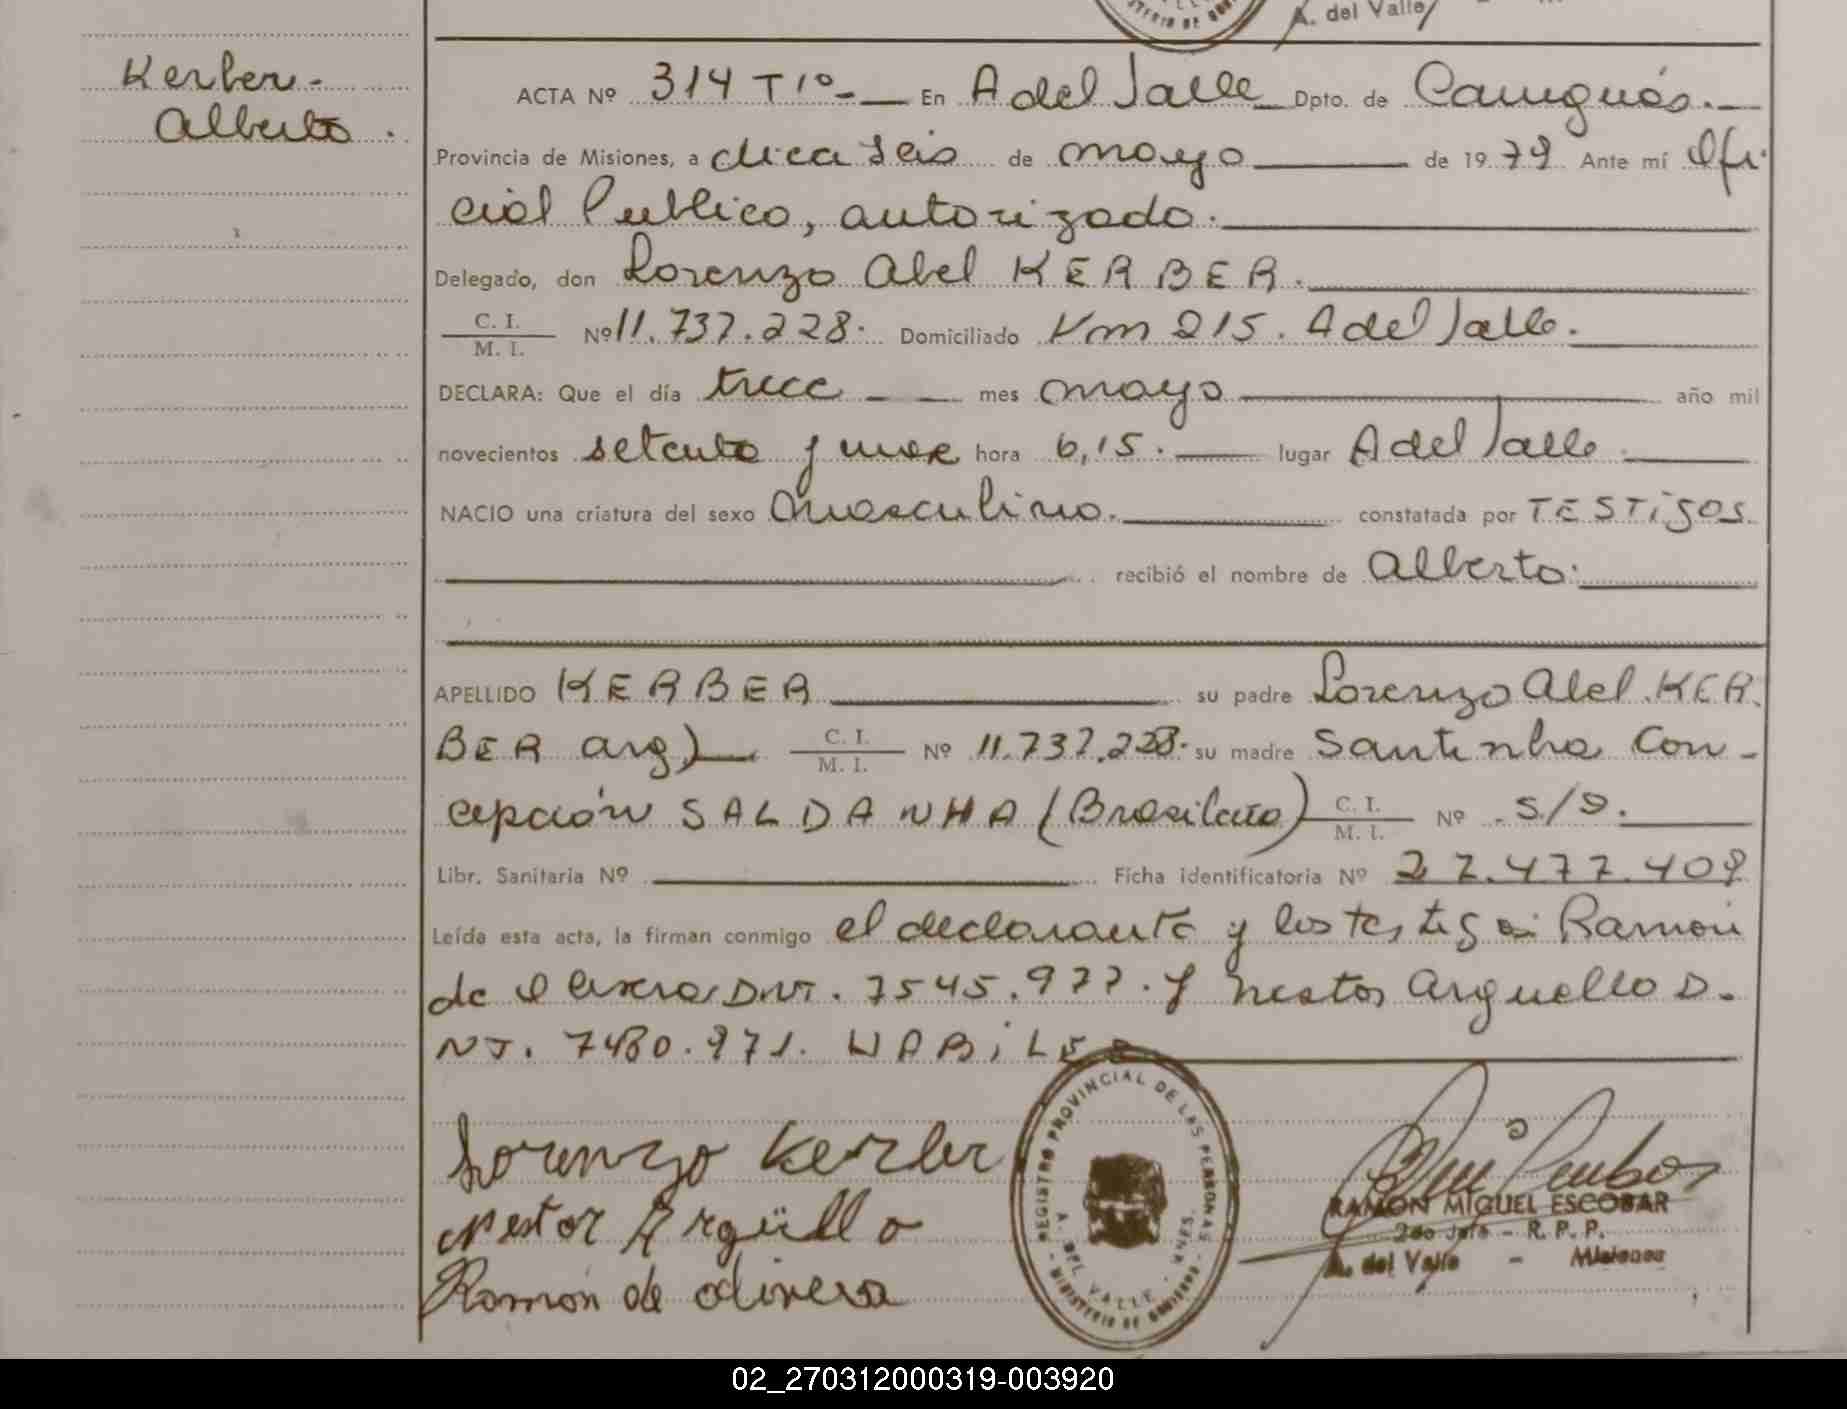 A. del Valle
Kerber.
Alberto.
ACTA Nº 314 Tº1º En A del Valle Dpto. de Cainguás.
Provincia de Misiones, a dieciseis de mayo de 1979 Ante mí Ofi
cial Publico, autorizado.
Delegado, don Lorenzo Abel KERBER.
C. I.
M. I.
Nº 11.737.228. Domiciliado Km 215. A del Valle.
DECLARA: Que el día trece mes mayo año mil
novecientos setenta y nueve hora 6,15. lugar A del Valle
NACIO una criatura del sexo masculino. constatada por TESTigos
recibió el nombre de Alberto.
APELLIDO KERBER su padre Lorenzo Abel KER
BER arg) C. I. M. I. Nº 11.737.228. su madre Santinha Con-
cepción SALDANHA (Brasileña) C. I. M. I. Nº S/D.
Libr. Sanitaria Nº Ficha identificatoria Nº 27.477.409
Leída esta acta, la firman conmigo el declarante y los testigos Ramón
de Olivera DNI. 7545.977. y Nestor Arguello D.
NI. 7480.971. HABiLES
Lorenzo Kerber
Nestor Argüello
Ramón de olivera
REGISTRO PROVINCIAL DE LAS PERSONAS
A. DEL VALLE - MNES.
MINISTERIO DE GOBIERNO
RAMON MIGUEL ESCOBAR
2do Jefe - R. P. P.
A. del Valle - Misiones
02_270312000319-003920